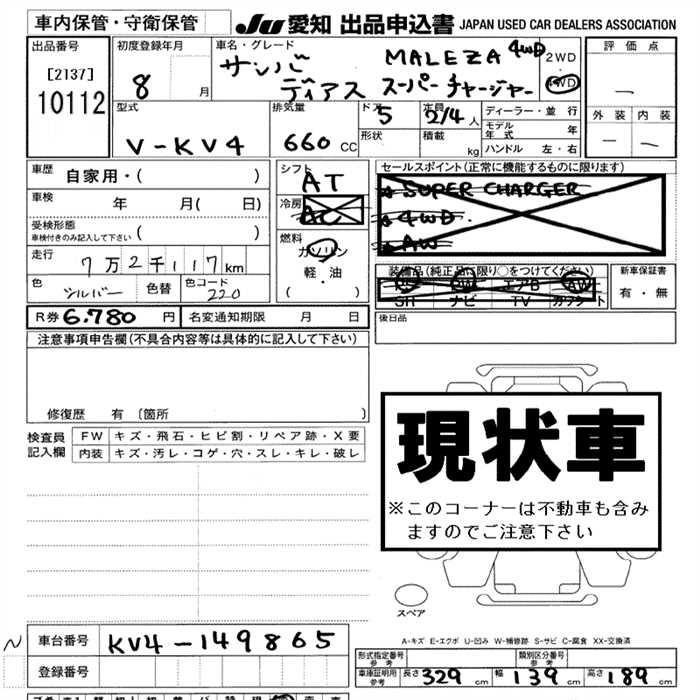 車内保管・守衛保管 JU 愛知 出品申込書 JAPAN USED CAR DEALERS ASSOCIATION
出品番号 初度登録年月 車名・グレード 評価点
[2137] 8 月 サンバー MALEZA 4WD 2WD
10112 ディアス スーパーチャージャー 4WD
型式 排気量 ドア 定員 ディーラー・並行 外装 内装
V-KV4 660 CC 5 2/4 人 モデル年式 年
形状 積載 kg ハンドル 左・右
車歴 自家用・( ) シフト AT セールスポイント(正常に機能するものに限ります)
車検 年 月( 日) 冷房 AC SUPER CHARGER
受検形態 ( ) 4WD.
車検付きのみ記入して下さい 燃料 ガソリン AW
走行 7万2千117km 軽・油 装備品(純正品に限り○をつけてください) 新車保証書
色 シルバー 色替 色コード 220 ( ) PS PW エアB AW 有・無
SH ナビ TV カワシート
R券 6.780 円 名変通知期限 月 日 後日品
注意事項申告欄(不具合内容等は具体的に記入して下さい)
修復歴 有 〔箇所 〕
検査員 FW キズ・飛石・ヒビ割・リペア跡・X要
記入欄 内装 キズ・汚レ・コゲ・穴・スレ・キレ・破レ
現状車
※このコーナーは不動車も含み
ますのでご注意下さい
スペア
A-キズ E-エクボ U-凹み W-補修跡 S-サビ C-腐食 XX-交換済
車台番号 KV4-149865 形式指定番号 参考 類別区分番号 参考
登録番号 車庫証明用 参考 長さ 329 cm 幅 139 cm 高さ 189 cm